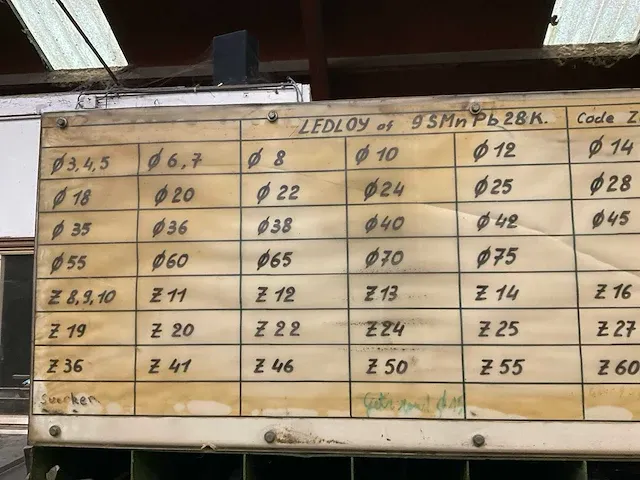 LEDLOY of 9SMnPb28K. Code Z
Ø3,4,5 Ø6,7 Ø 8 Ø 10 Ø 12 Ø 14
Ø 18 Ø20 Ø 22 Ø24 Ø25 Ø28
Ø 35 Ø36 Ø38 Ø40 Ø 42 Ø45
Ø55 Ø60 Ø65 Ø70 Ø75
Z 8,9,10 Z 11 Z 12 Z 13 Z 14 Z 16
Z 19 Z 20 Z 22 Z24 Z 25 Z 27
Z 36 Z 41 Z 46 Z 50 Z 55 Z 60